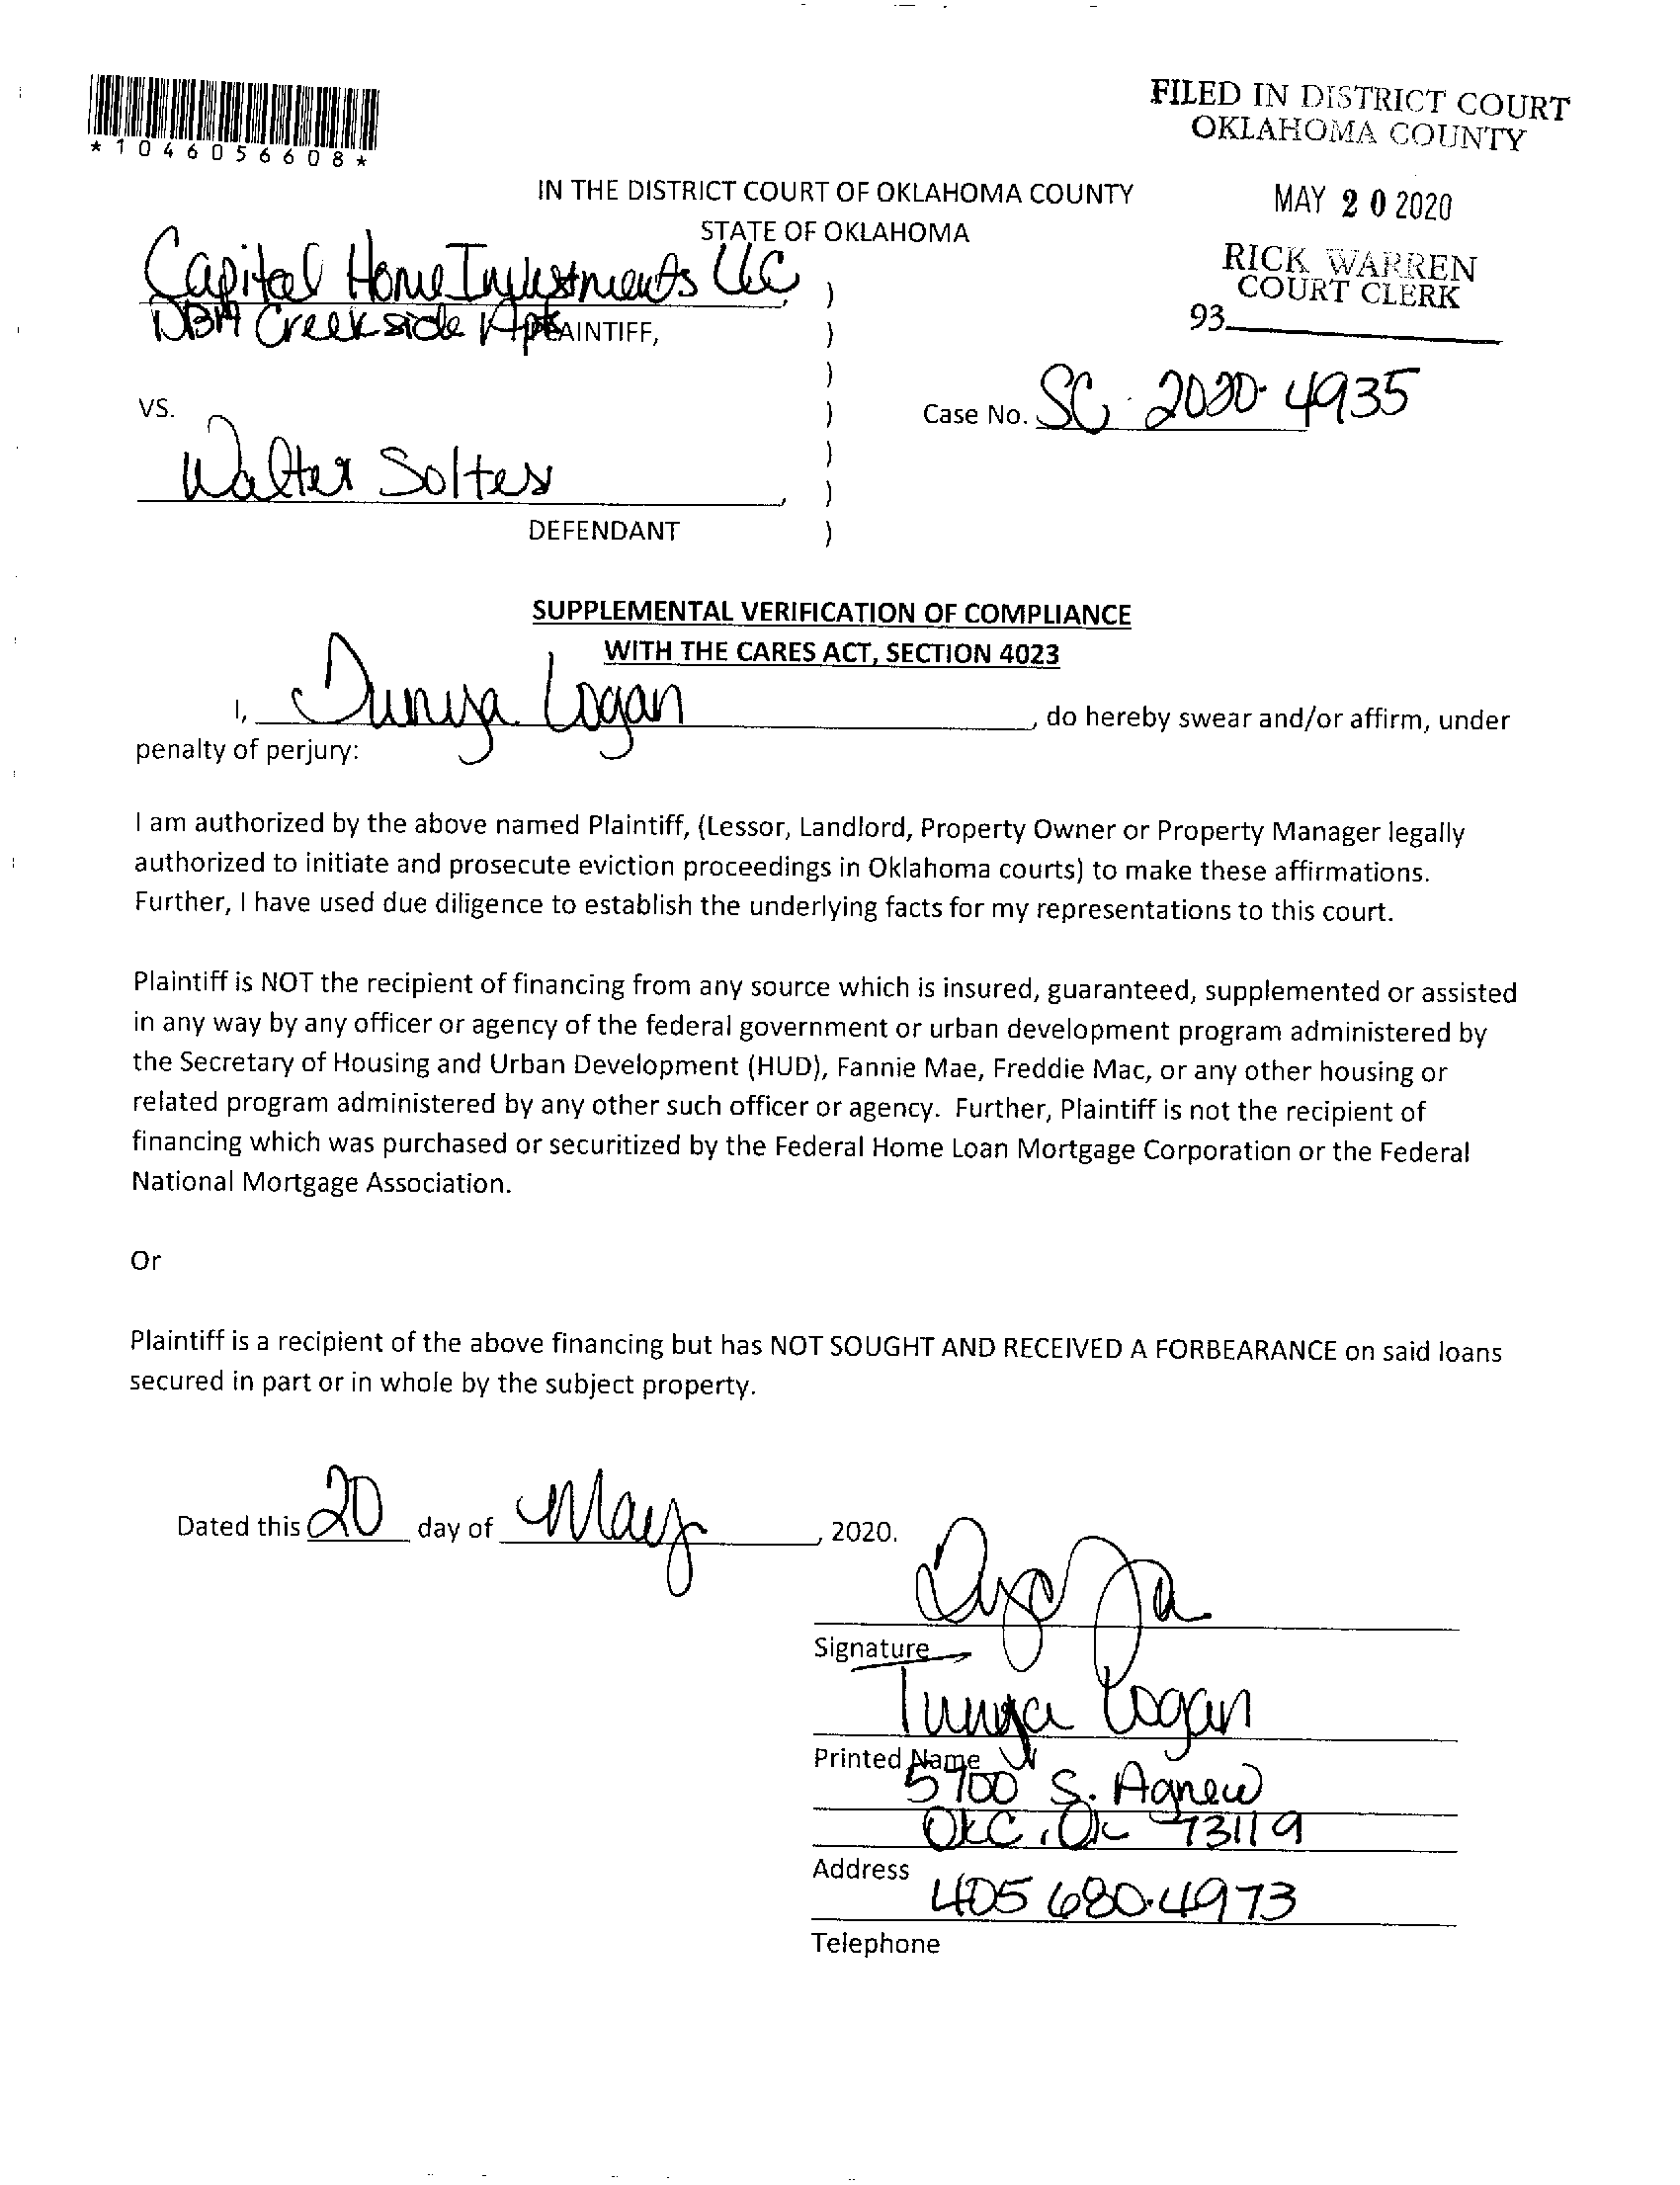 *1046056608*
FILED IN DISTRICT COURT
OKLAHOMA COUNTY
MAY 20 2020
RICK WARREN
COURT CLERK
93
IN THE DISTRICT COURT OF OKLAHOMA COUNTY
STATE OF OKLAHOMA
Capital Home Investments LLC
DBA Creekside Apts
PLAINTIFF,
VS.
Case No. SC-2020-4935
Walter Soltes
DEFENDANT
SUPPLEMENTAL VERIFICATION OF COMPLIANCE
WITH THE CARES ACT, SECTION 4023
I, Tunya Logan, do hereby swear and/or affirm, under
penalty of perjury:
I am authorized by the above named Plaintiff, (Lessor, Landlord, Property Owner or Property Manager legally
authorized to initiate and prosecute eviction proceedings in Oklahoma courts) to make these affirmations.
Further, I have used due diligence to establish the underlying facts for my representations to this court.
Plaintiff is NOT the recipient of financing from any source which is insured, guaranteed, supplemented or assisted
in any way by any officer or agency of the federal government or urban development program administered by
the Secretary of Housing and Urban Development (HUD), Fannie Mae, Freddie Mac, or any other housing or
related program administered by any other such officer or agency. Further, Plaintiff is not the recipient of
financing which was purchased or securitized by the Federal Home Loan Mortgage Corporation or the Federal
National Mortgage Association.
Or
Plaintiff is a recipient of the above financing but has NOT SOUGHT AND RECEIVED A FORBEARANCE on said loans
secured in part or in whole by the subject property.
Dated this 20 day of May, 2020.
Signature
Tunya Logan
Printed Name
5700 S. Agnew
OKC, OK 73119
Address
405 680-4973
Telephone